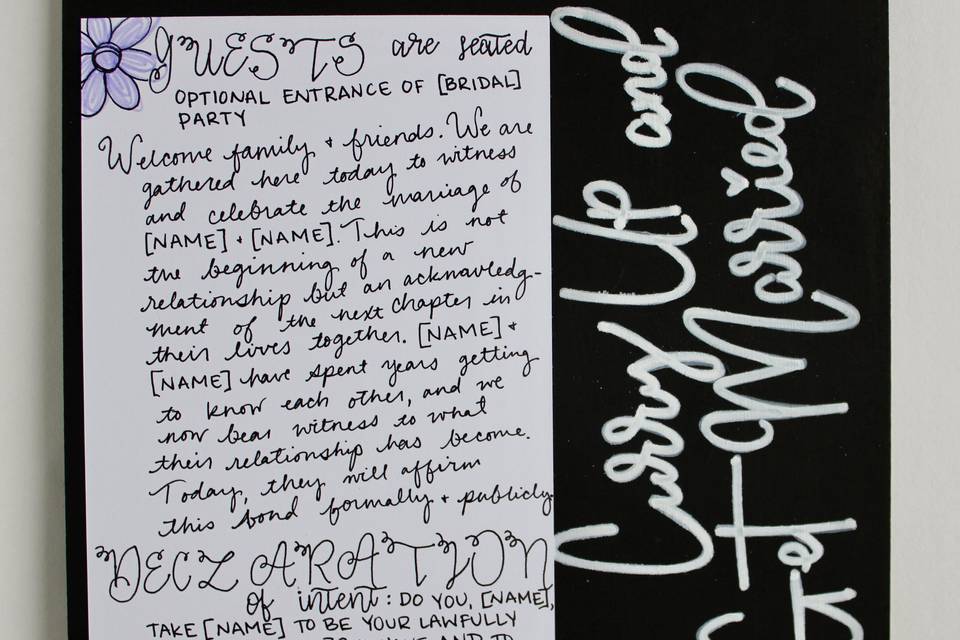 GUESTS are seated
OPTIONAL ENTRANCE OF [BRIDAL]
PARTY
Welcome family + friends. We are
gathered here today to witness
and celebrate the marriage of
[NAME] + [NAME]. This is not
the beginning of a new
relationship but an acknowledg-
ment of the next chapter in
their lives together. [NAME] +
[NAME] have spent years getting
to know each other, and we
now bear witness to what
their relationship has become.
Today, they will affirm
this bond formally + publicly
DECLARATION
of intent: DO YOU, [NAME],
TAKE [NAME] TO BE YOUR LAWFULLY
AND TO
Curry Up and
Get Married